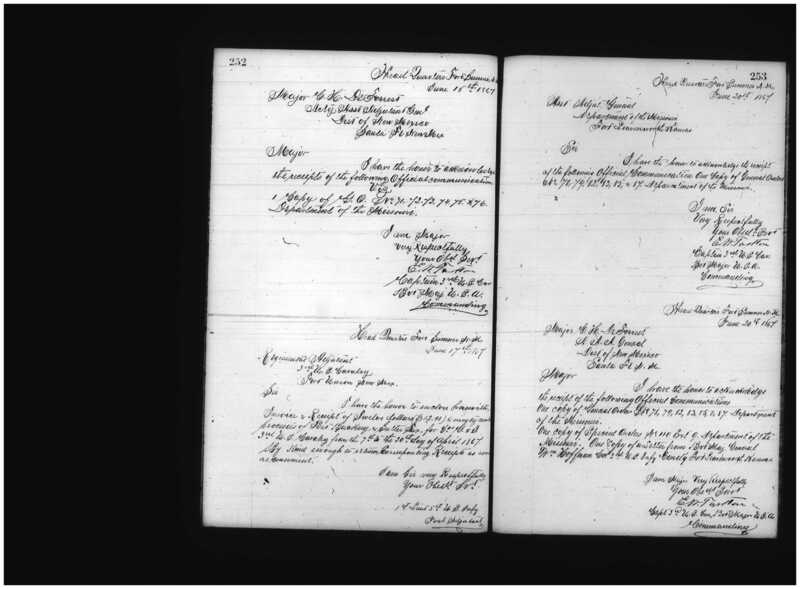 252
Head Quarters Fort Sumner N.M.
June 16th 1867
Major C. H. DeForrest
Actg Asst Adjutant Genl
Dist of New Mexico
Santa Fe New Mex
Major
I have the honor to acknowledge
the receipts of the following Official communication
Viz
1 Copy of G.O. No 71. 72. 73. 74. 75. & 76.
Department of the Missouri.
I am Major
Very Respectfully
Your Obt. Servt
Captain 3rd U.S. Cav
Bvt Maj U.S.A.
Commanding
Head Quarters Fort Sumner N.M.
June 17th 1867
Regimental Adjutant
3rd U.S. Cavalry
Fort Union New Mex.
Sir
I have the honor to enclose herewith
Invoice & Receipt of Twelve dollars
3rd U.S. Cavalry from the 7th to the 20th day of April 1867
enough to return Receipts as soon
as convenient.
I am Sir very Respectfully
Your Obedt. Svt
1st Lieut 5th U.S. Infy
Post Adjutant
253
Head Quarters Fort Sumner N.M.
June 20th 1867
Asst Adjut. General
Department of the Missouri
Fort Leavenworth Kansas
Sir
I have the honor to acknowledge the receipt
of the following Official Communication One Copy of General Orders
Department of the Missouri.
I am Sir
Very Respectfully
Your Obedt. Servt
Captain 3rd U.S. Cav
Bvt Major U.S.A.
Commanding
Head Quarters Fort Sumner N.M.
June 20th 1867
Major C. H. DeForrest
A. A. A. General
Dist of New Mexico
Santa Fe N.M.
Major
I have the honor to acknowledge
the receipt of the following Official Communications
One copy of General Orders Department
of the Missouri.
One copy of Special Orders No 110 Department of the
Missouri. One Copy of a letter from Bvt Maj. General
Wm Hoffman Col 3rd U.S. Infy Comdg Fort Leavenworth Kansas
I am Major Very Respectfully
Your Obt. Servt
Capt 3rd U.S. Cav. Bvt Major U.S.A.
Commanding